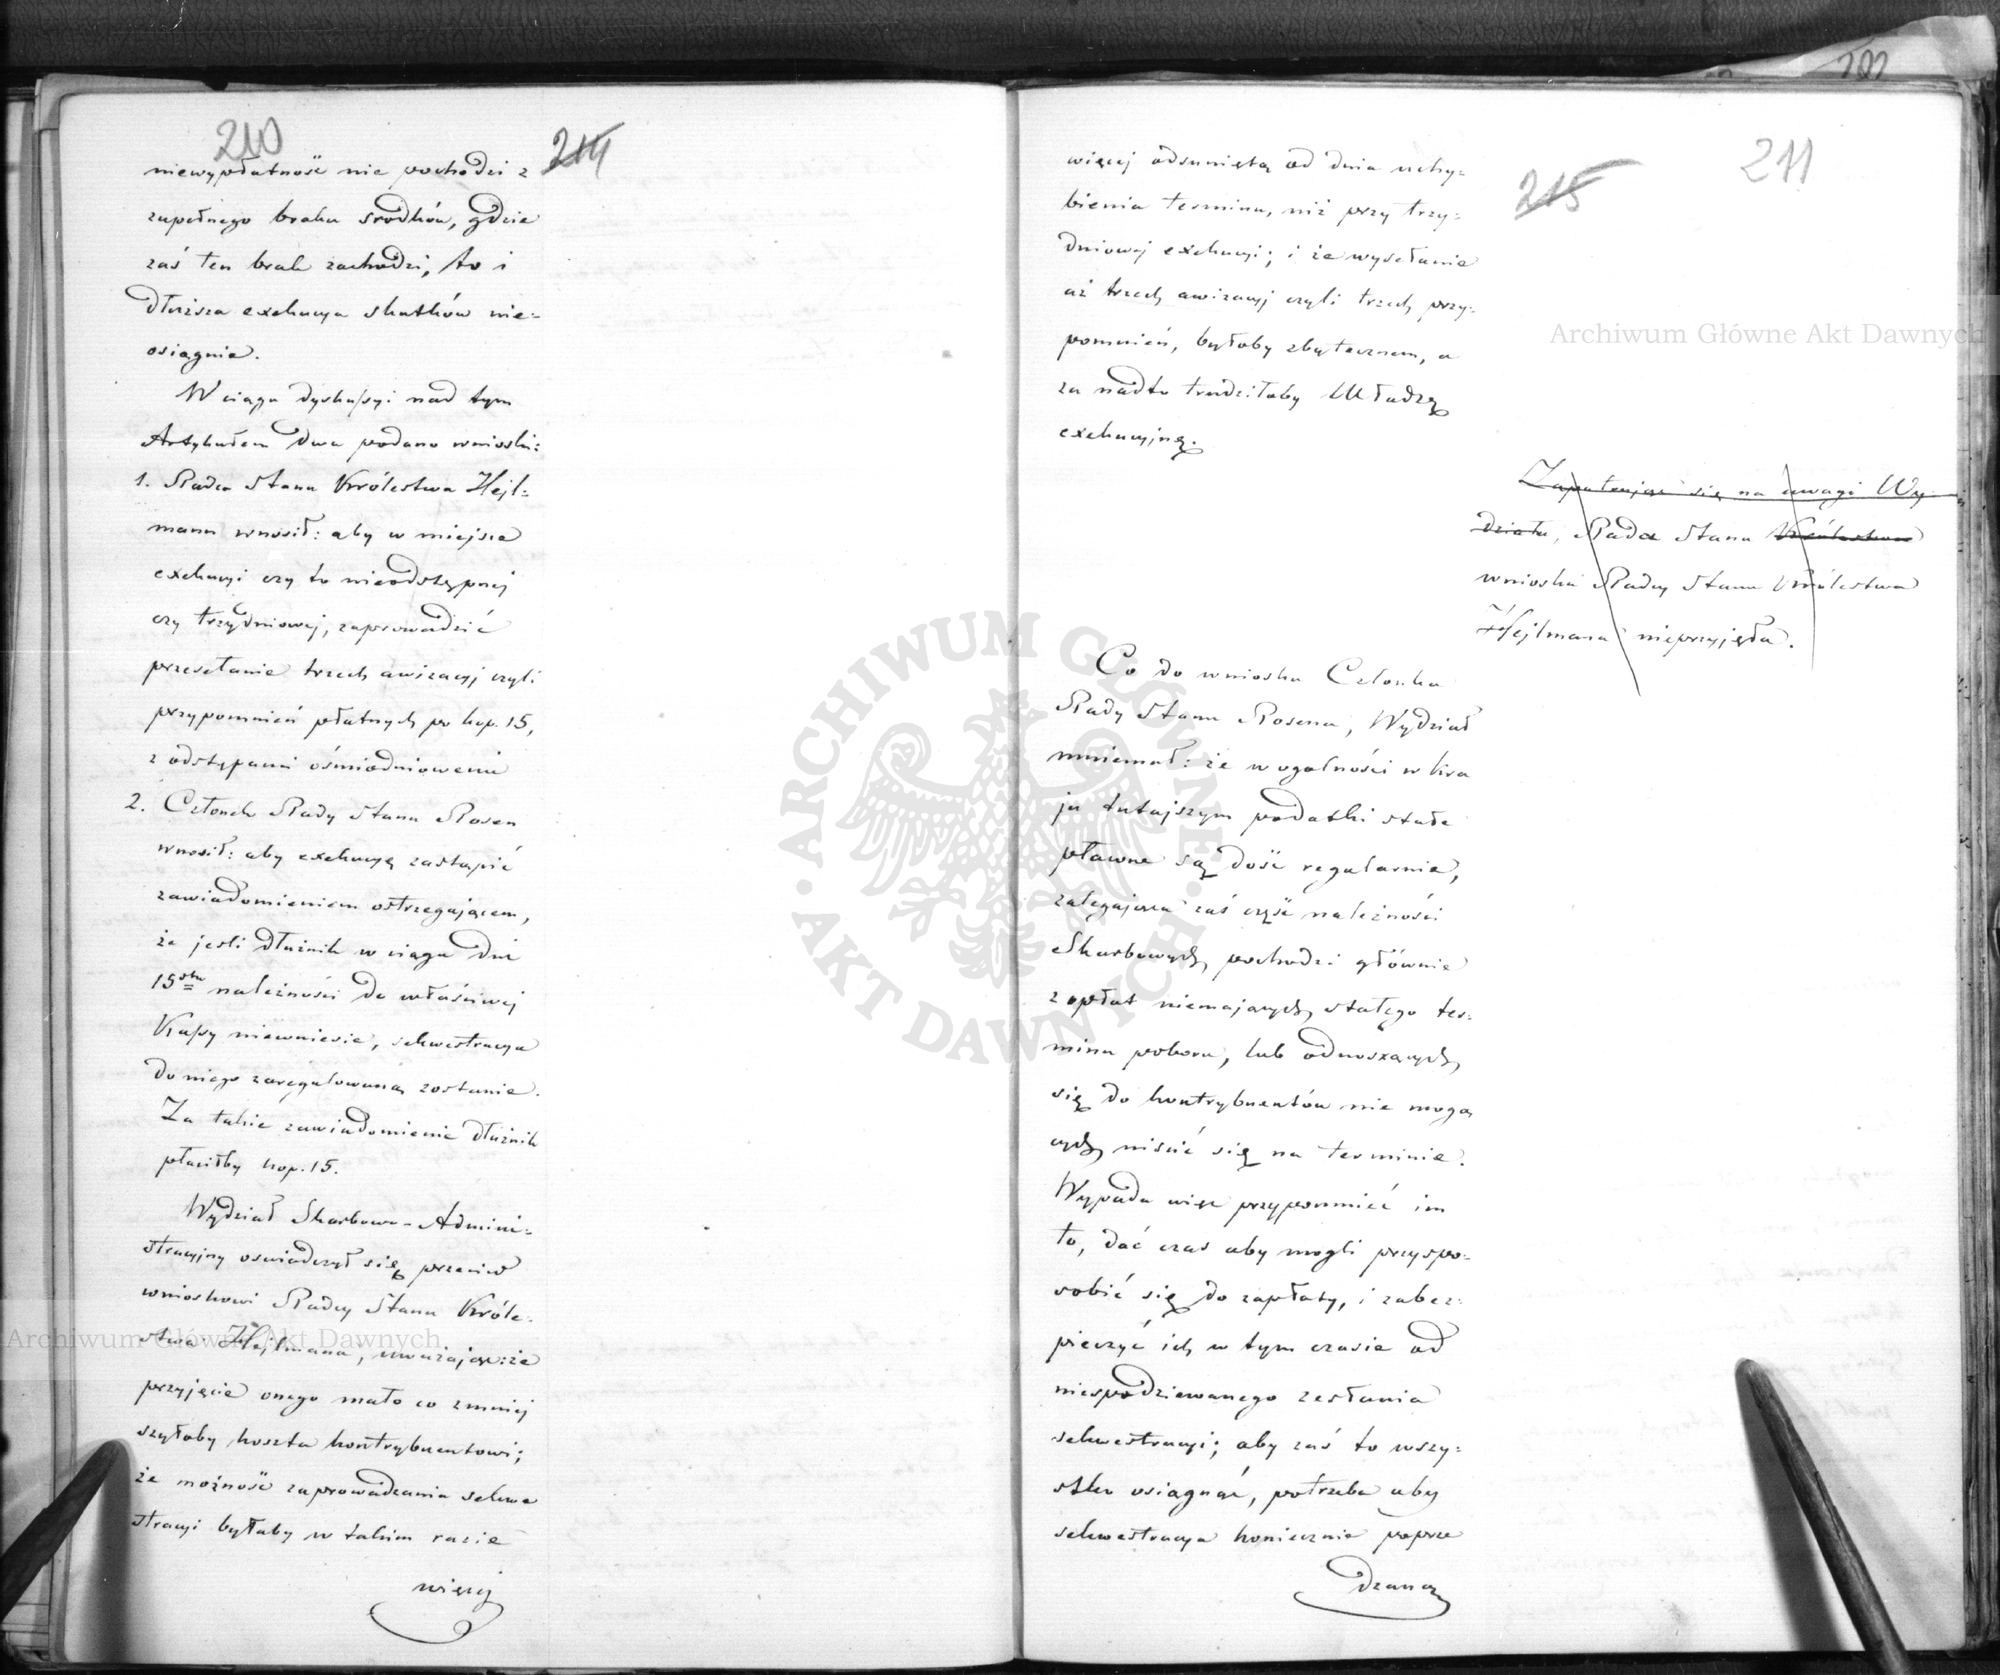 210
214
niewypłatność nie pochodzi z
zupełnego braku srodków, gdzie
zaś ten brak zachodzi, to i
dłuższa exekucya skutków nie-
osiągnie.
W ciągu dyskussyi nad tym
Artykułem dwa podano wnioski:
1. Radca Stanu Królestwa Hejl-
mann wnosił: aby w miejsce
exekucyi czy to nieodstępnej
czy trzydniowej, zaprowadzić
przesełanie trzech awizacyj czyli
przypomnień płatnych po kop. 15,
z odstępami ośmiodniowemi
2. Członek Rady Stanu Rosen
wnosił: aby exekucyę zastąpić
zawiadomieniem ostrzegającem,
że jeśli dłużnik w ciągu dni
15stu należności do właściwej
Kassy niewniesie, sekwestracya
do niego zaregulowaną zostanie.
Za takie zawiadomienie dłużnik
płaciłby kop. 15.
Wydział Skarbowo-Admini-
stracyjny oswiadczył się przeciw
wnioskowi Radcy Stanu Króle-
stwa Hejlmana, uważając: że
przyjęcie onego mało co zmniej
szyłoby koszta kontrybuentowi;
że możność zaprowadzania sekwe
stracyi byłaby w takim razie
więcej
211
215
więcej odsuniętą od dnia uchy-
bienia terminu, niż przy trzy-
dniowej exekucyi; i że wysełanie
aż trzech awizacyj czyli trzech przy-
pomnień, byłoby zbytecznem, a
za nadto trudziłoby Władzę
exekucyjną.
Zapatrując się na uwagi Wy-
działu, Rada Stanu Królestwa
wniosku Radcy Stanu Królestwa
Hejlmana nieprzyjęła.
Co do wniosku Członka
Rady Stanu Rosena, Wydział
mniemał: że w ogolności w kra
ju tutajszym podatki stałe
pławne są dość regularnie,
zalegająca zaś część należności
Skarbowych, pochodzi głównie
z opłat niemających stałego ter-
minu poboru, lub odnoszących
się do kontrybuentów nie mogą
cych uiścić się na terminie.
Wypada więc przypomnieć im
to, dać czas aby mogli przyspo-
sobić się do zapłaty, i zabez-
pieczyć ich w tym czasie od
niespodziewanego zesłania
sekwestracyi; aby zaś to wszy-
stko osiągnąć, potrzeba aby
sekwestracya koniecznie poprze
dzana
Archiwum Główne Akt Dawnych
Archiwum Główne Akt Dawnych
ARCHIWUM GŁÓWNE AKT DAWNYCH